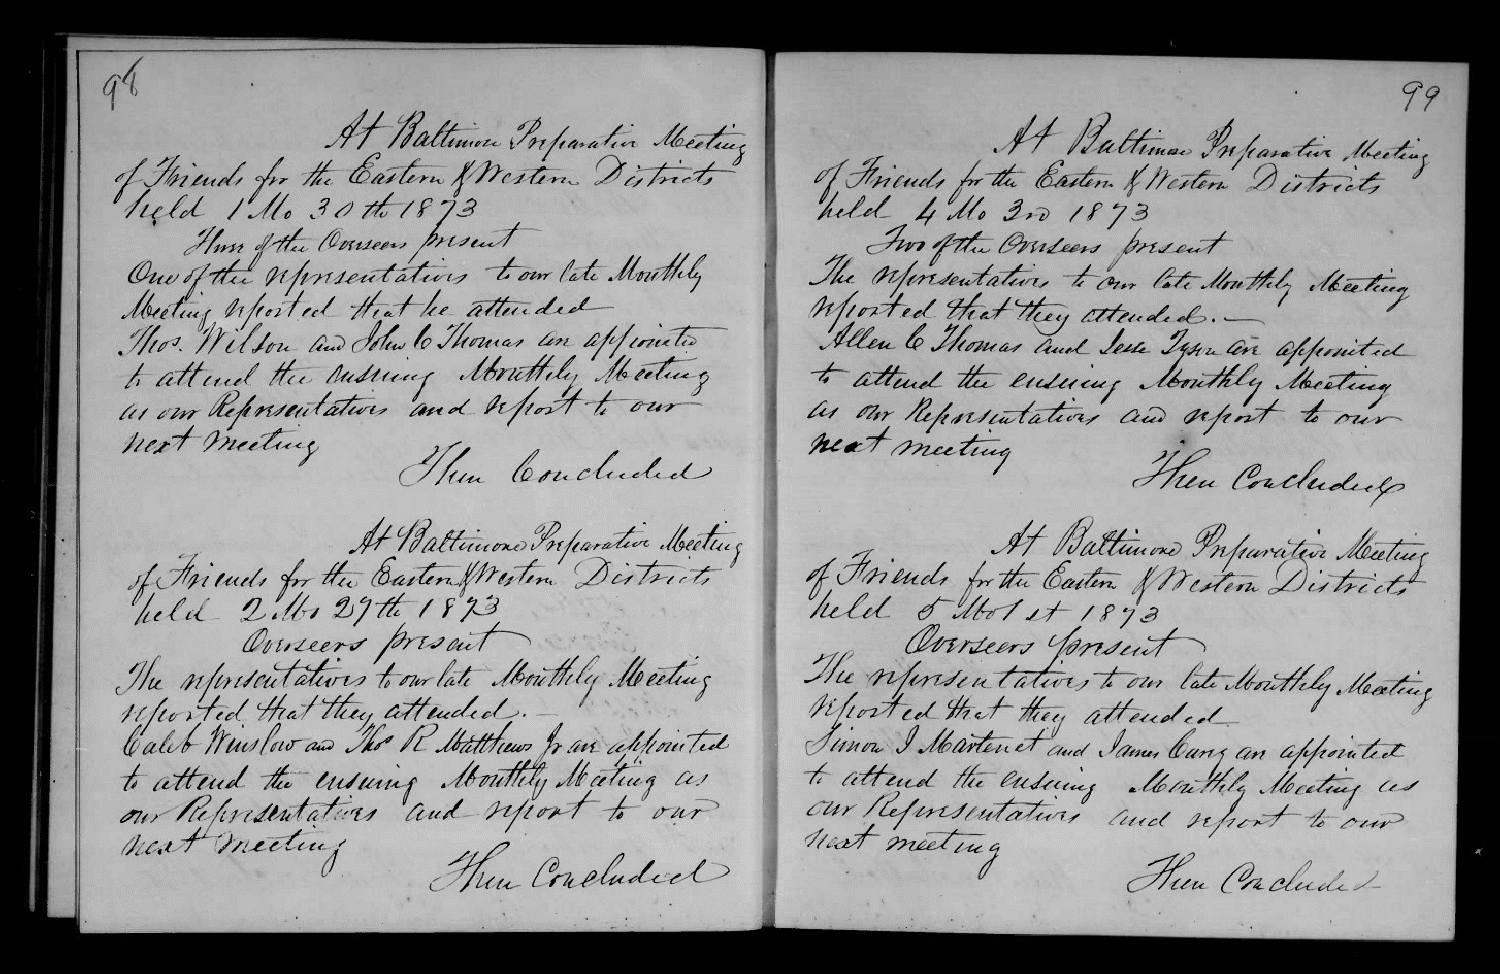 98
At Baltimore Preparative Meeting
of Friends for the Eastern & Western Districts
held 1 Mo 30th 1873
Three of the Overseers present
One of the representatives to our late Monthly
Meeting reported that he attended
Thos. Wilson and John C Thomas are appointed
to attend the ensuing Monthly Meeting
as our Representatives and report to our
next meeting
Then Concluded
At Baltimore Preparative Meeting
of Friends for the Eastern & Western Districts
held 2 Mo 27th 1873
Overseers present
The representatives to our late Monthly Meeting
reported that they attended.—
Caleb Winslow and Thos R Matthews Jr are appointed
to attend the ensuing Monthly Meeting as
our Representatives and report to our
next meeting
Then Concluded
99
At Baltimore Preparative Meeting
of Friends for the Eastern & Western Districts
held 4 Mo 3rd 1873
Two of the Overseers present
The representatives to our late Monthly Meeting
reported that they attended.—
Allen C Thomas and Jesse Tyson are appointed
to attend the ensuing Monthly Meeting
as our Representatives and report to our
next meeting
Then Concluded
At Baltimore Preparative Meeting
of Friends for the Eastern & Western Districts
held 5 Mo 1st 1873
Overseers present
The representatives to our late Monthly Meeting
reported that they attended
Simon J Martenet and James Carey are appointed
to attend the ensuing Monthly Meeting as
our Representatives and report to our
next meeting
Then Concluded